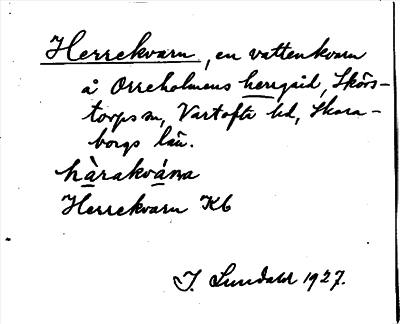 Herrekvarn, en vattenkvarn
å Orreholmens herrgård, Skörs-
torps sn, Vartofta hd, Skara-
borgs län.
hàrakvána
Herrekvarn Kb
J. Sundahl 1927.